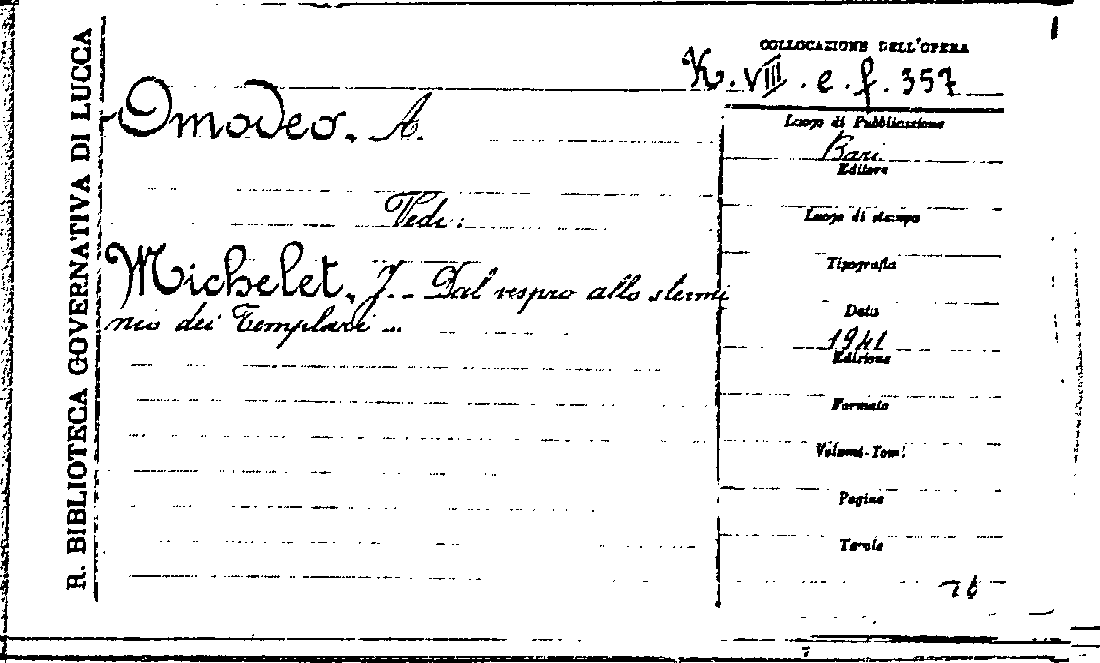 R. BIBLIOTECA GOVERNATIVA DI LUCCA
COLLOCAZIONE DELL'OPERA
K. VIII. e. f. 357
Omodeo, A.
Vedi:
Michelet, J. - Dal vespro allo stermi
nio dei Templari ...
Luogo di Pubblicazione
Bari
Editore
Luogo di stampa
Tipografia
Data
1941
Edizione
Formato
Volumi-Tomi
Pagine
Tavole